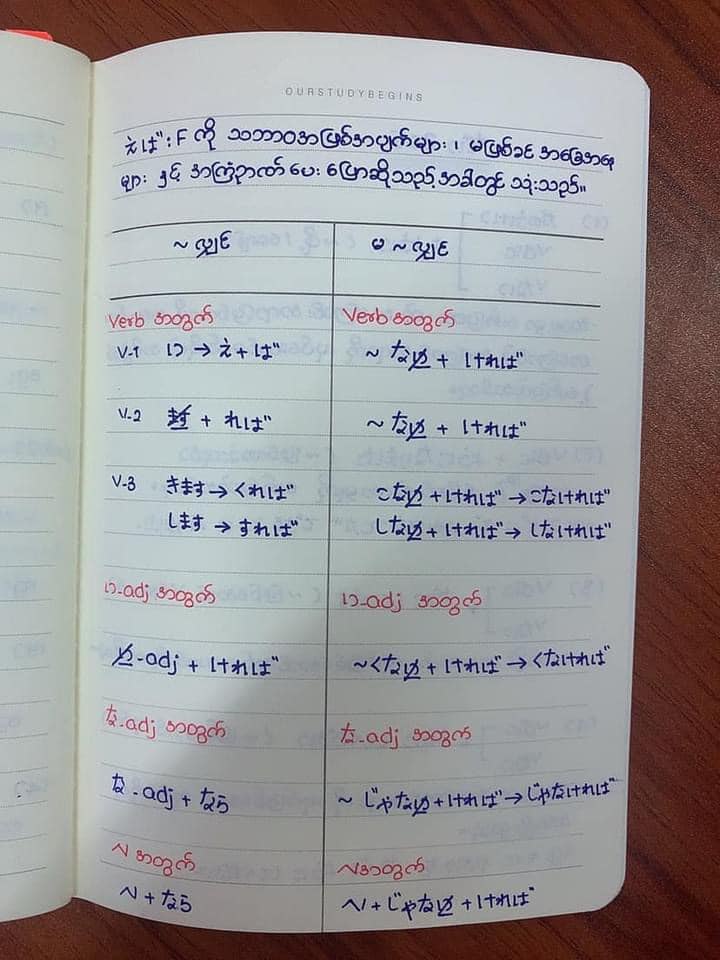 OURSTUDYBEGINS
えば : F ကို သဘာဝအဖြစ်အပျက်များ၊ မဖြစ်ခင် အခြေအနေ
များ နှင့် အကြံဉာဏ် ပေး ပြောဆိုသည့် အခါတွင် သုံးသည်။
~ လျှင် မ ~ လျှင်
Verb အတွက် Verb အတွက်
V-1 い → え + ば ~ ない + ければ
V-2 ます + れば ~ ない + ければ
V-3 きます → くれば こない + ければ → こなければ
します → すれば しない + ければ → しなければ
い-adj အတွက် い-adj အတွက်
い-adj + ければ ~くない + ければ → くなければ
な-adj အတွက် な-adj အတွက်
な-adj + なら ~ じゃない + ければ → じゃなければ
N အတွက် N အတွက်
N + なら N + じゃない + ければ